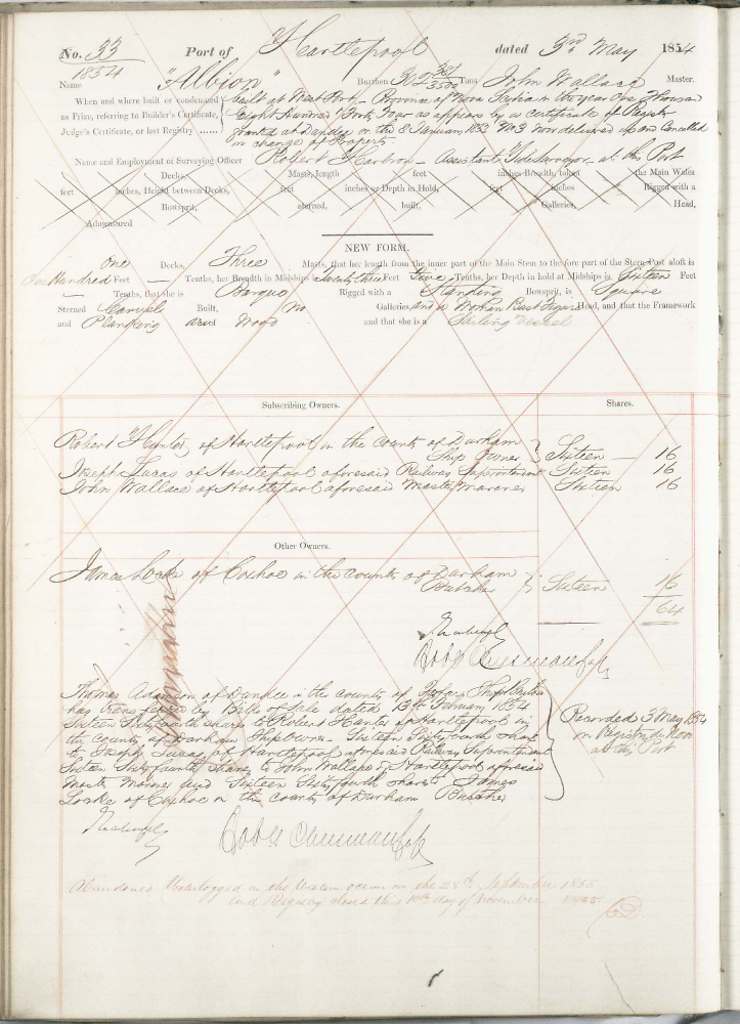 No. 33 Port of Hartlepool dated 3rd May 1854
1854
Name "Albion" Burthen 392 Tons John Wallace Master.
When and where built or condemned built at West Port - Province of Nova Scotia in the year One Thousand
as Prize, referring to Builder's Certificate, Eight Hundred & Forty Four as appears by a certificate of Registry
Judge's Certificate, or last Registry ...... granted at Dundee on the 8 January 1853 No 3 Now delivered up and Cancelled
in change of Property.
Name and Employment of Surveying Officer Robert - Assistant Tide Surveyor at this Port
Decks, Masts, Length feet inches Breadth, inches the Main Wales
feet inches, Height between Decks, feet inches or Depth in Hold, feet inches Rigged with a
Bowsprit, sterned, built, Galleries, Head,
Admeasured
NEW FORM.
one Decks, Three Masts, that her length from the inner part of the Main Stem to the fore part of the Stern Post aloft is
One Hundred Feet — Tenths, her Breadth in Midships is Twenty three Feet Tenths, her Depth in hold at Midships is Sixteen Feet
— Tenths, that she is Barque Rigged with a Standing Bowsprit, is Square
Sterned Carvel Built, No Galleries, and a Woman Bust Figure Head, and that the Framework
and Planking is of Wood and that she is a Sailing Vessel
Subscribing Owners. Shares.
Robert Hunter of Hartlepool in the County of Durham
Ship Owner } Sixteen — 16
Joseph Lucas of Hartlepool aforesaid Railway Superintendent Sixteen 16
John Wallace of Hartlepool aforesaid Master Mariner Sixteen 16
Other Owners.
James Locke of Coxhoe in the County of Durham
Butcher } Sixteen 16
64
Thomas Adamson of Dundee in the County of Forfar Ship
has transferred by Bill of Sale dated 13th February 1854
Sixteen Sixty fourth shares to Robert Hunter of Hartlepool in
the County of Durham Ship Owner - Sixteen Sixty fourth Shares
to Joseph Lucas of Hartlepool aforesaid Railway Superintendent
Sixteen Sixty fourth Shares to John Wallace of Hartlepool aforesaid
Master Mariner and Sixteen Sixty fourth Shares James
Locke of Coxhoe in the County of Durham Butcher
Recorded 3 May 1854
in Registry de Novo
at this Port
Abandoned Waterlogged in the Western ocean on the 28th September 1855
and Registry closed this 10th day of November 1855